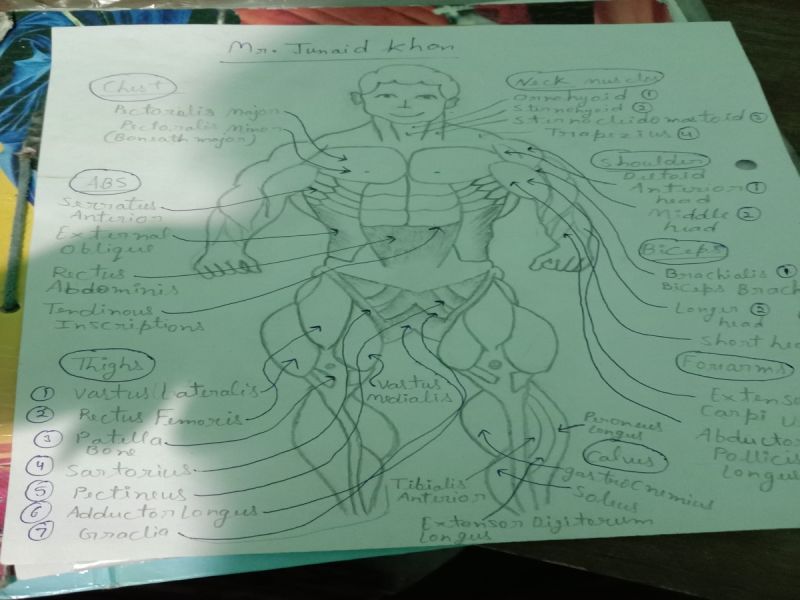 Mr. Junaid Khan
Chest
Pectoralis major
Pectoralis minor
(Beneath major)
ABS
Serratus
Anterior
External
Oblique
Rectus
Abdominis
Tendinous
Inscriptions
Thighs
① Vastus Lateralis
② Rectus Femoris
③ Patella
Bone
④ Sartorius
⑤ Pectineus
⑥ Adductor Longus
⑦ Gracila
Vastus
medialis
Neck muscles
Omohyoid ①
Sternohyoid ②
Sternocleidomatoid ③
Trapezius ④
Shoulder
Deltoid
Anterior ①
head
Middle ②
head
Biceps
Brachialis ①
Biceps Brach
Longer ②
head
Short hea
Forearms
Extenso
Carpi U
Abductor
Pollicis
Longus
Peroneus
Longus
Calves
gastrocnemius
Soleus
Tibialis
Anterior
Extensor Digitorum
Longus